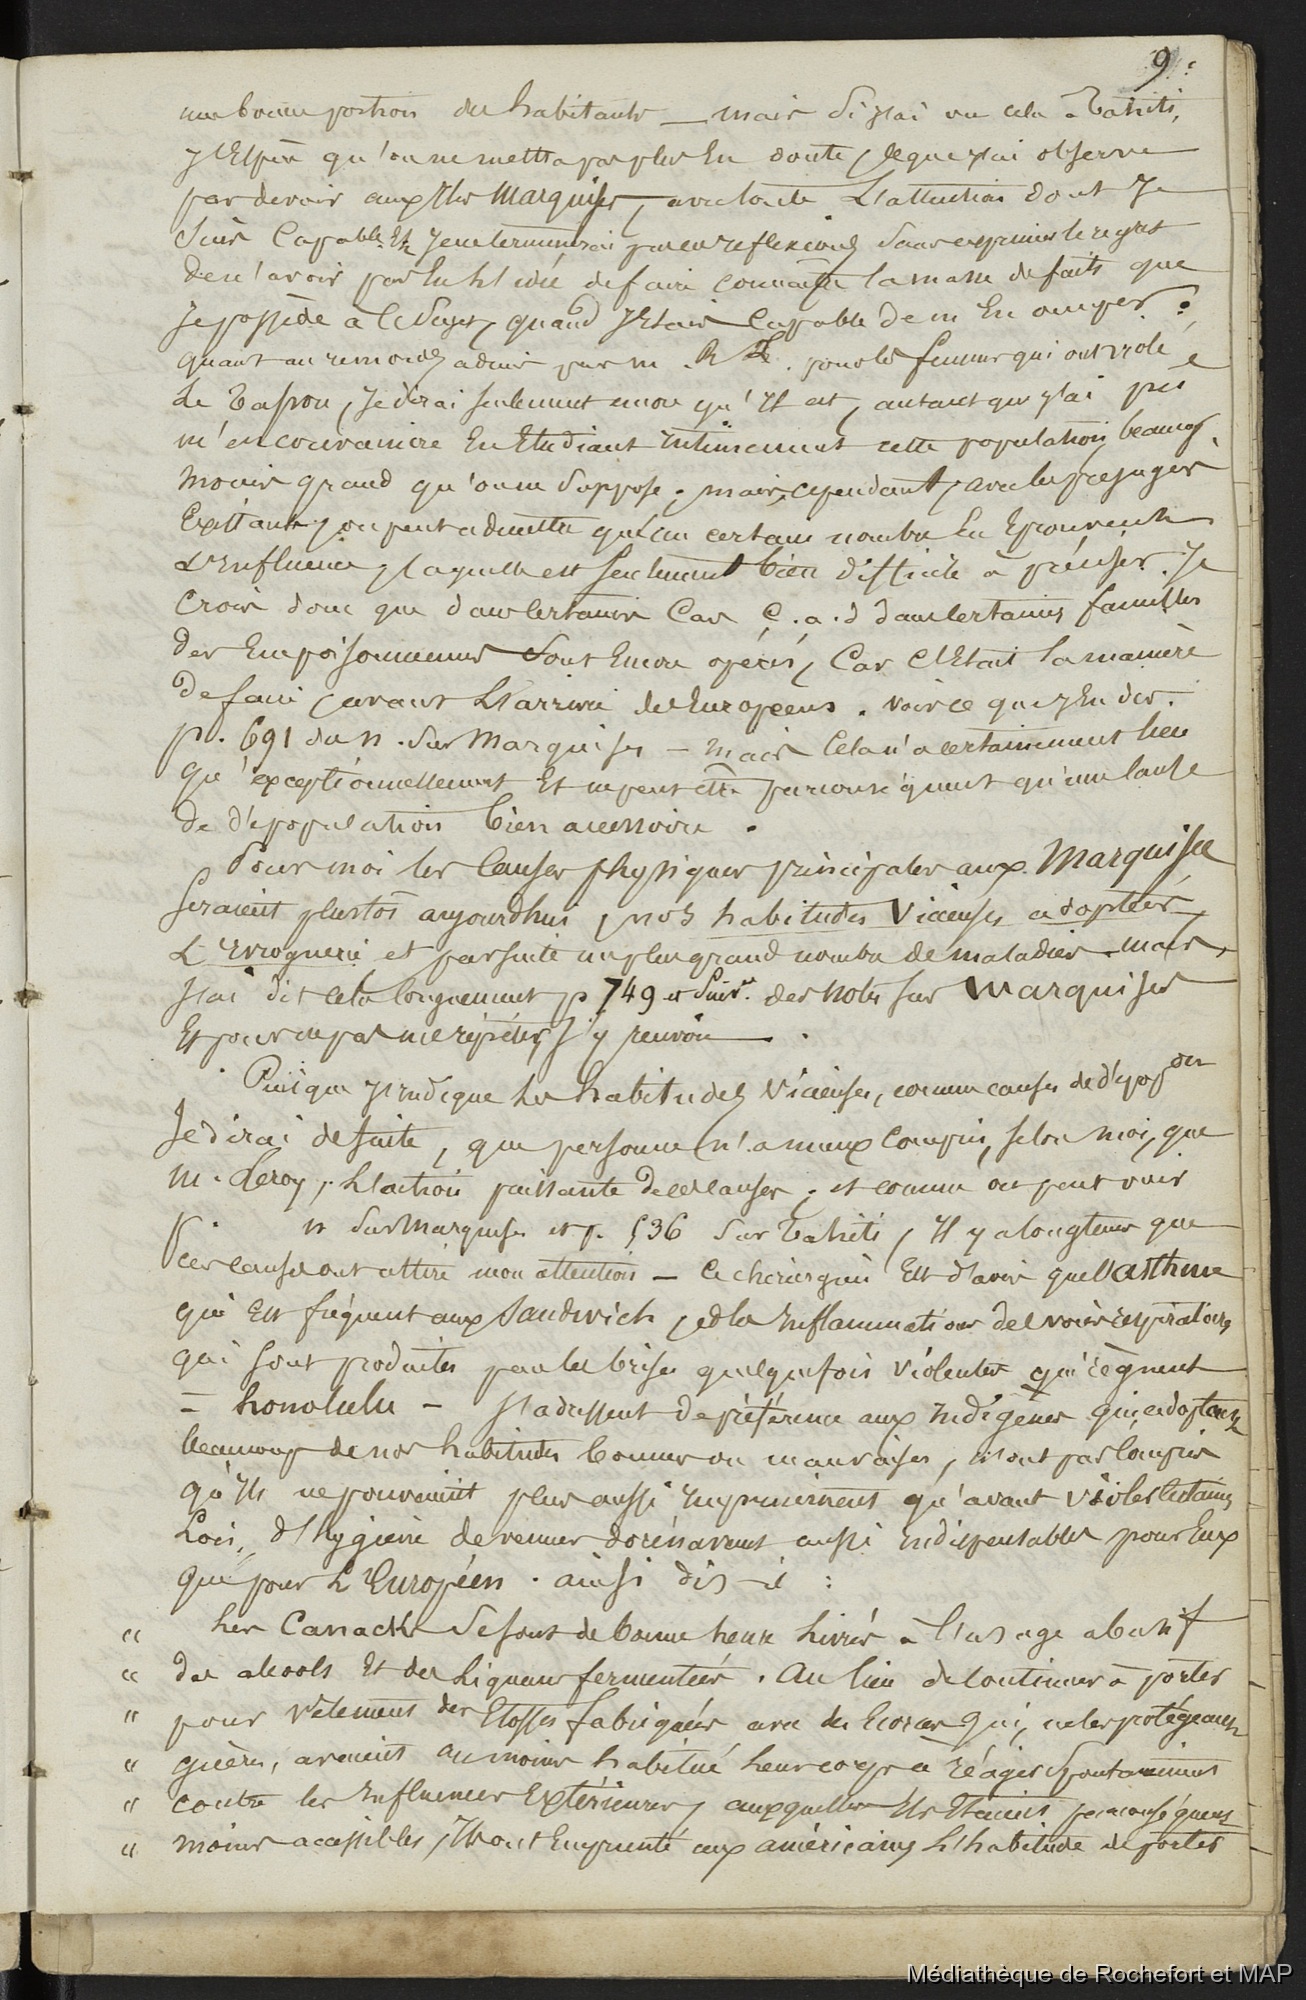 9.
une bonne portion des habitants — mais si j'ai vu cela à Tahiti,
j'Espère qu'on ne mettra pas plus En doute, ce que j'ai observé
par devoir aux Iles Marquises, avec toute L'attention dont Je
suis Capable. Et Je ne terminerai pas ces reflexions sans exprimer le regret
de n'avoir pas Eu L'idée de faire connaître la masse de faits que
Je possède à ce Sujet, quand J'Etais Capable de m'En occuper.
quant au remords admis par m. R . pour les femmes qui ont violé
Le Tapou, Je dirai seulement encore qu'Il est, autant que j'ai pu
m'en convaincre En Etudiant intimement cette population, beaucp.
moins grand qu'on ne Suppose. mais, cependant, avec les préjugés
Existants, on peut admettre qu'un certain nombre En Eprouvent
L'Influence, laquelle est seulement bien difficile à préciser. Je
Crois donc que dans Certains Cas c. a. d dans Certaines familles
des Empoisonnements sont Encore opérés, Car C'Etait la manière
de faire avant L'arrivée des Européens. voir ce que j'En dis.
p. 691 du n. Sur Marquises — mais Cela n'a certainement lieu
qu'exceptionnellement Et ne peut être par conséquent qu'une Cause
de dépopulation bien accessoire.
Pour moi les Causes physiques principales aux Marquises
seraient plustôt aujourdhui, nos habitudes Vicieuses adoptées,
L'Ivrognerie et par suite un plus grand nombre de maladies. mais,
J'ai dit cela longuement p 749 et suivt. des notes sur Marquises
Et pour ne pas me répéter, J'y renvoie.
Puisque J'Indique Les habitudes Vicieuses, comme causes de dépopon
Je dirai de suite, que personne n'a mieux compris, selon moi, que
m. Leroy, L'action puissante de ces causes; et comme on peut voir
p. n Sur Marquises et p. 536 Sur Tahiti, Il y a longtems que
ces causes ont attiré mon attention — Ce chirurgien Est d'avis que l'asthme
qui Est fréquent aux Sandwich, et les Inflammations des voies respiratoires
qui sont produites par les brises quelquefois violentes qui règnent
à honolulu — s'adressent de préférence aux Indigènes qui, adoptant
beaucoup de nos habitudes bonnes ou mauvaises, n'ont pas compris
qu'Ils ne pouvaient plus aussi Impunément qu'avant violer certaines
Lois d'hygiène devenues dorénavant aussi indispensables pour Eux
que pour L'Européen. ainsi dit-il :
" Les Canacks Se sont de bonne heure Livrés à l'usage abusif
" des alcools Et des Liqueurs fermentées. Au lieu de Continuer à porter
" pour vêtement des Etoffes fabriquées avec des Ecorces qui, ne les protégeant
" guères, avaient au moins habitué Leur corps à réagir spontanément
" contre les Influences Extérieures, auxquelles Ils Etaient par conséquent
" moins accessibles, Ils ont Emprunté aux américains L'habitude de porter
Médiathèque de Rochefort et MAP